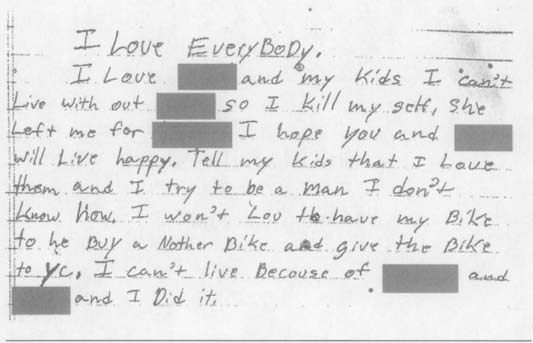 I Love EveryBoDy.
I Love and my Kids I can't
Live with out so I kill my self, She
Left me for I hope you and
will Live happy. Tell my Kids that I Love
them and I try to be a man I don't
Know How. I won't You to have my Bike
to he Buy a Nother Bike and give the Bike
to yc. I can't live Becouse of and
and I Did it.